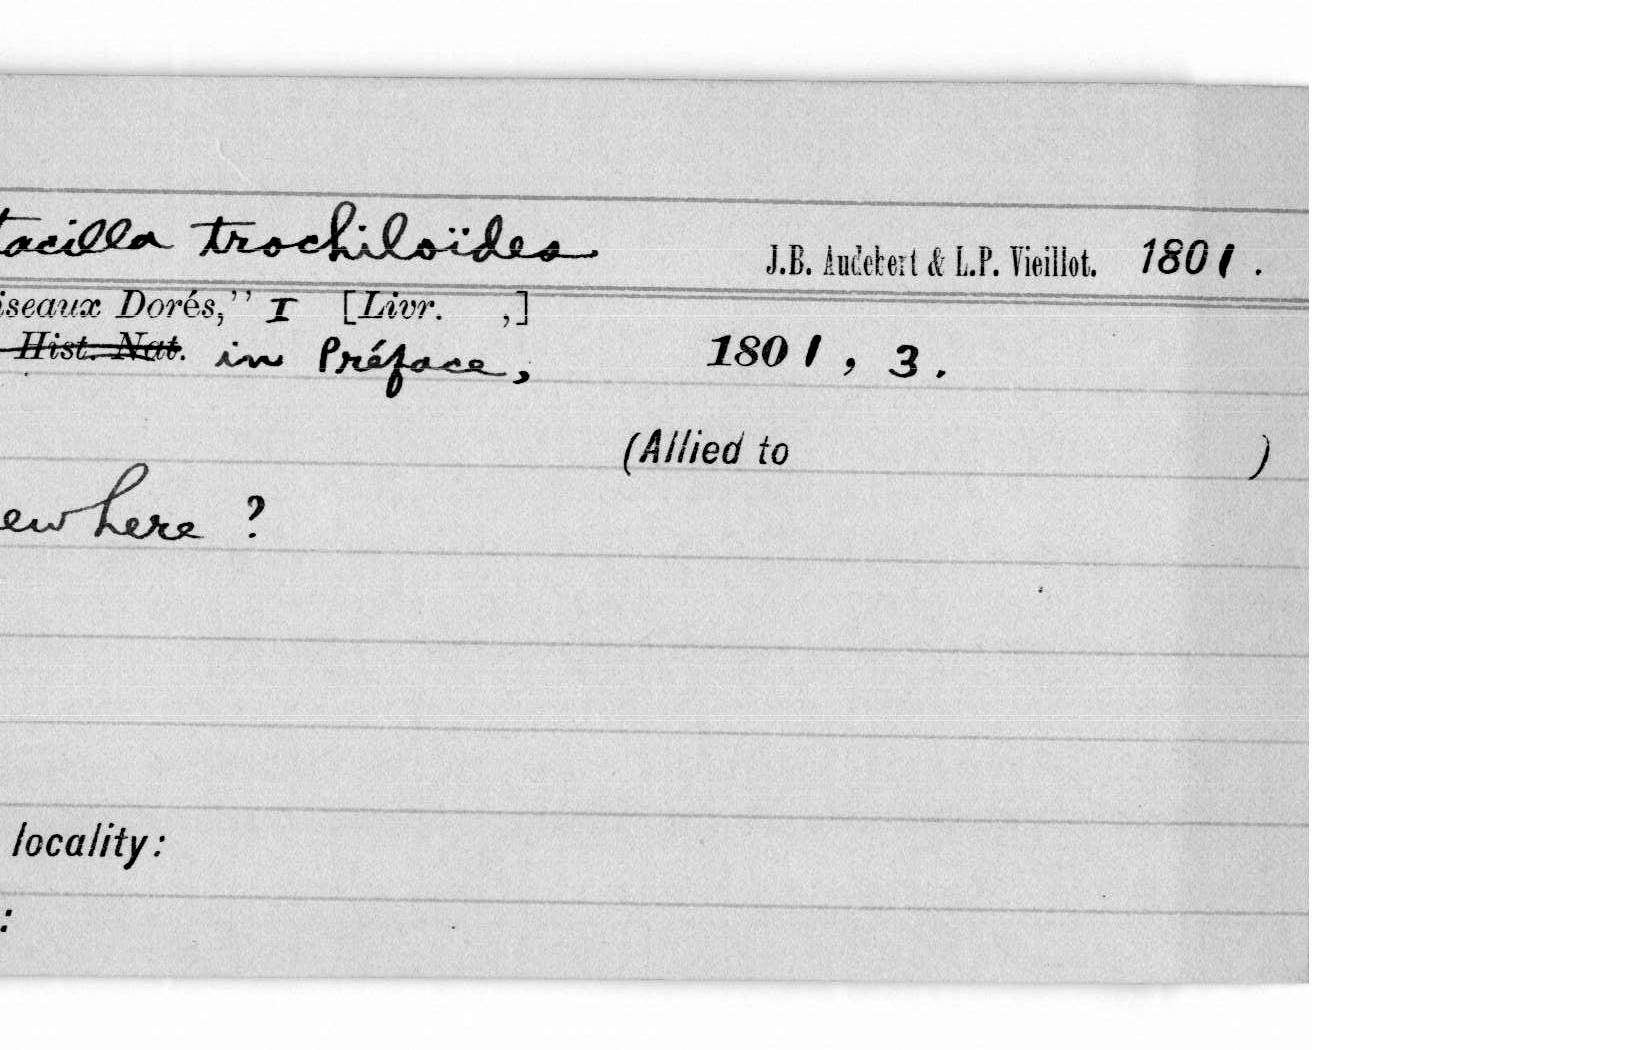 tacilla trochiloïdes J.B. Audebert & L.P. Vieillot. 1801.
iseaux Dorés," I [Livr. ,]
Hist. Nat. in Préface, 1801, 3.
(Allied to )
ewhere ?
locality:
: